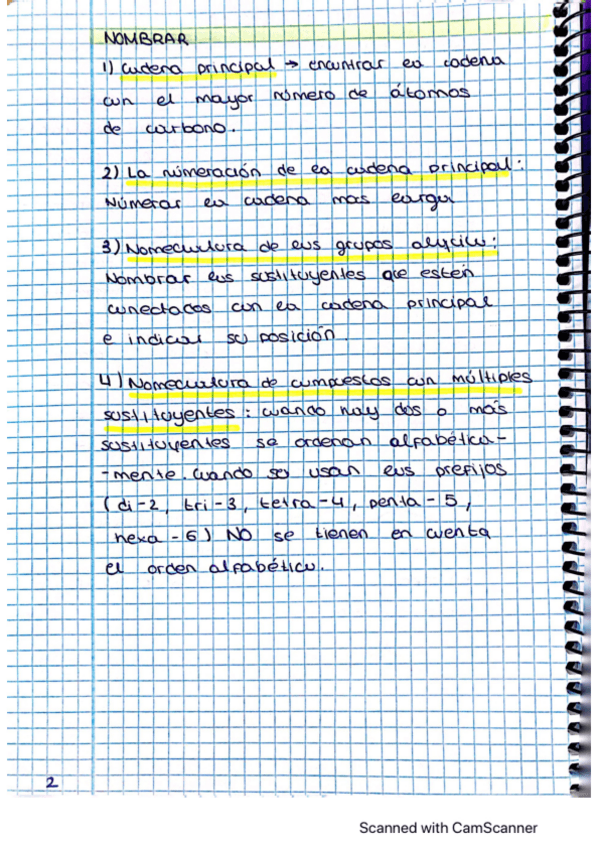 NOMBRAR
1) Cadena principal → encontrar la cadena
con el mayor número de átomos
de carbono.
2) La númeración de la cadena principal:
Númerar la cadena mas larga
3) Nomeclatura de los grupos alquilo:
Nombrar los sustituyentes que estén
conectados con la cadena principal
e indicar su posición.
4) Nomeclatura de compuestos con múltiples
sustituyentes: cuando hay dos o más
sustituyentes se ordenan alfabética-
-mente. Cuando se usan los prefijos
(di-2, tri-3, tetra-4, penta-5,
hexa-6) NO se tienen en cuenta
el orden alfabético.
2
Scanned with CamScanner